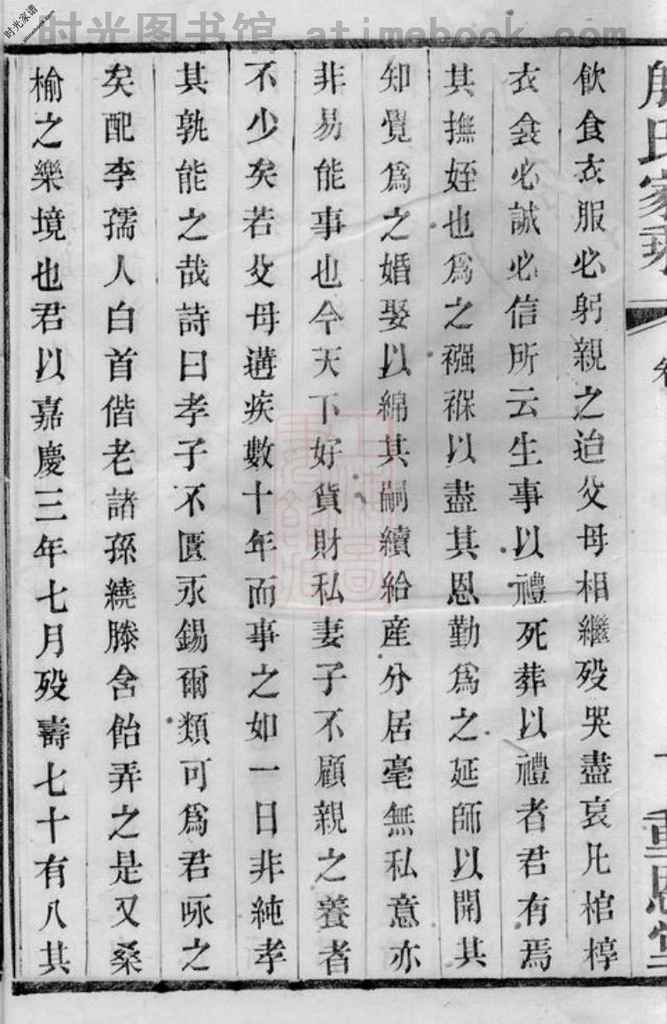 时光图书馆 atimebook.com
时光家谱
殷氏家乘
重恩堂
飲食衣服必躬親之迨父母相繼殁哭盡哀凡棺椁
衣衾必誠必信所云生事以禮死葬以禮者君有焉
其撫姪也爲之襁褓以盡其恩勤爲之延師以開其
知覺爲之婚娶以綿其嗣續給産分居毫無私意亦
非易能事也今天下好貨財私妻子不顧親之養者
不少矣若父母遘疾數十年而事之如一日非純孝
其孰能之哉詩曰孝子不匱永錫爾類可爲君咏之
矣配李孺人白首偕老諸孫繞滕含飴弄之是又桑
榆之樂境也君以嘉慶三年七月殁壽七十有八其